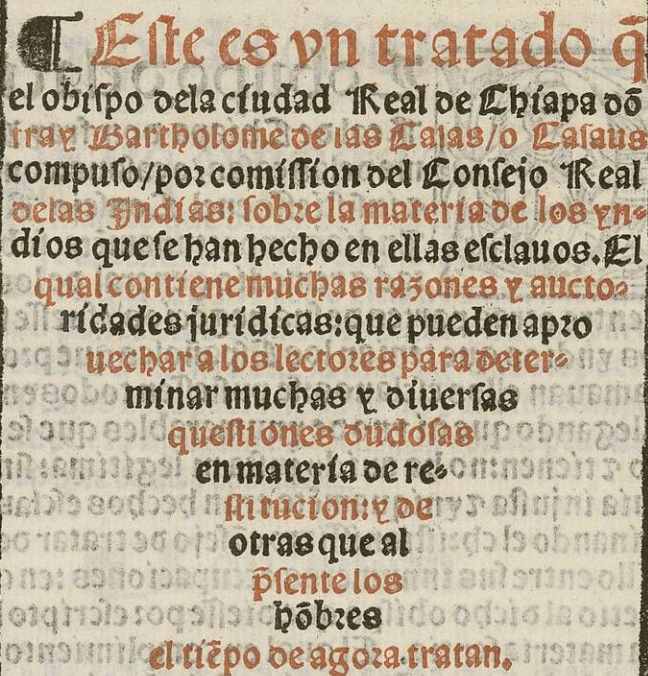 ¶ Este es vn tratado q̃
el obispo dela ciudad Real de Chiapa dõ
fray Bartholome de las Casas/o Casaus
compuso/por comission del Consejo Real
delas Indias: sobre la materia de los yn-
dios que se han hecho en ellas esclauos. El
qual contiene muchas razones y aucto-
ridades juridicas: que pueden apro
uechar a los lectores para deter-
minar muchas y diuersas
questiones dudosas
en materia de re-
stitucion: y de
otras que al
p̃sente los
hõbres
el tiẽpo de agora tratan.